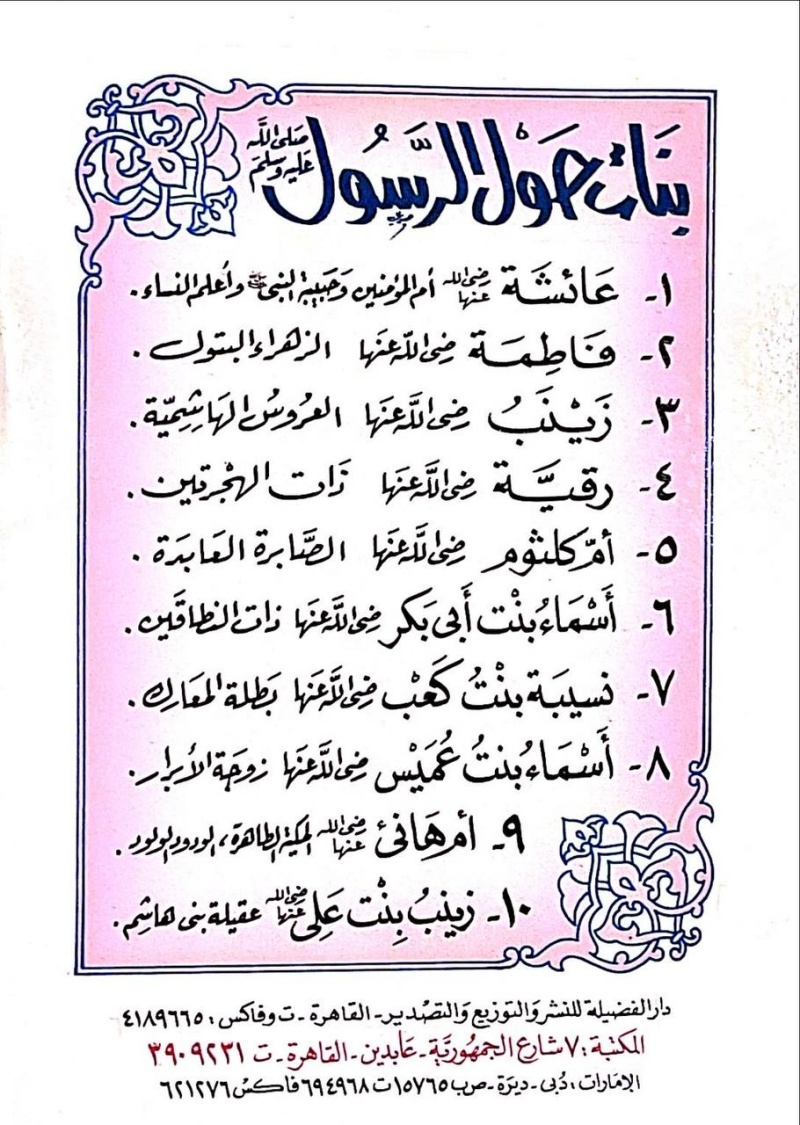 بَنَات حَوْل الرَّسُول صَلى اللَّه عَليه وسَلم
١- عَائشَة رضى الله عنها أم المؤمنين وحَبيبة النبى ﷺ وأعلم النساء.
٢- فَاطِمَة رضى اللَّه عَنهَا الزهراء البتول.
٣- زَيْنَبُ رضى اللَّه عَنهَا العرُوسُ الهَاشِميَّة.
٤- رقيَّة رضى اللَّه عَنهَا ذَات الهجْرتين.
٥- أمّ كلثوم رضى اللَّه عَنهَا الصَّابرة العَابدَة.
٦- أَسْمَاءُ بنْت أَبى بَكر رضى اللَّه عَنهَا ذات النطاقَين.
٧- نسيبَة بنْتُ كَعْب رضى اللَّه عَنهَا بَطلة المعَارك.
٨- أَسْمَاءُ بنتُ عُمَيْس رضى اللَّه عَنهَا زوجَة الأبرار.
٩- أم هَانئ رضى الله عنها المكية الطاهرة، الودود الولود.
١٠- زينبُ بِنْت عَلِى رضى الله عنها عقيلة بنى هاشِم.
دار الفضيلة للنشر والتوزيع والتصْدير - القاهرة - ت وفاكس: ٤١٨٩٦٦٥
المكتبة: ٧ شارع الجمهُوريَّة - عَابدين - القاهرة - ت ٣٩٠٩٢٣١
الإمَارات: دُبى - ديرَة - ص ب ١٥٧٦٥ ت ٦٩٤٩٦٨ فاكسْ ٦٢١٢٧٦